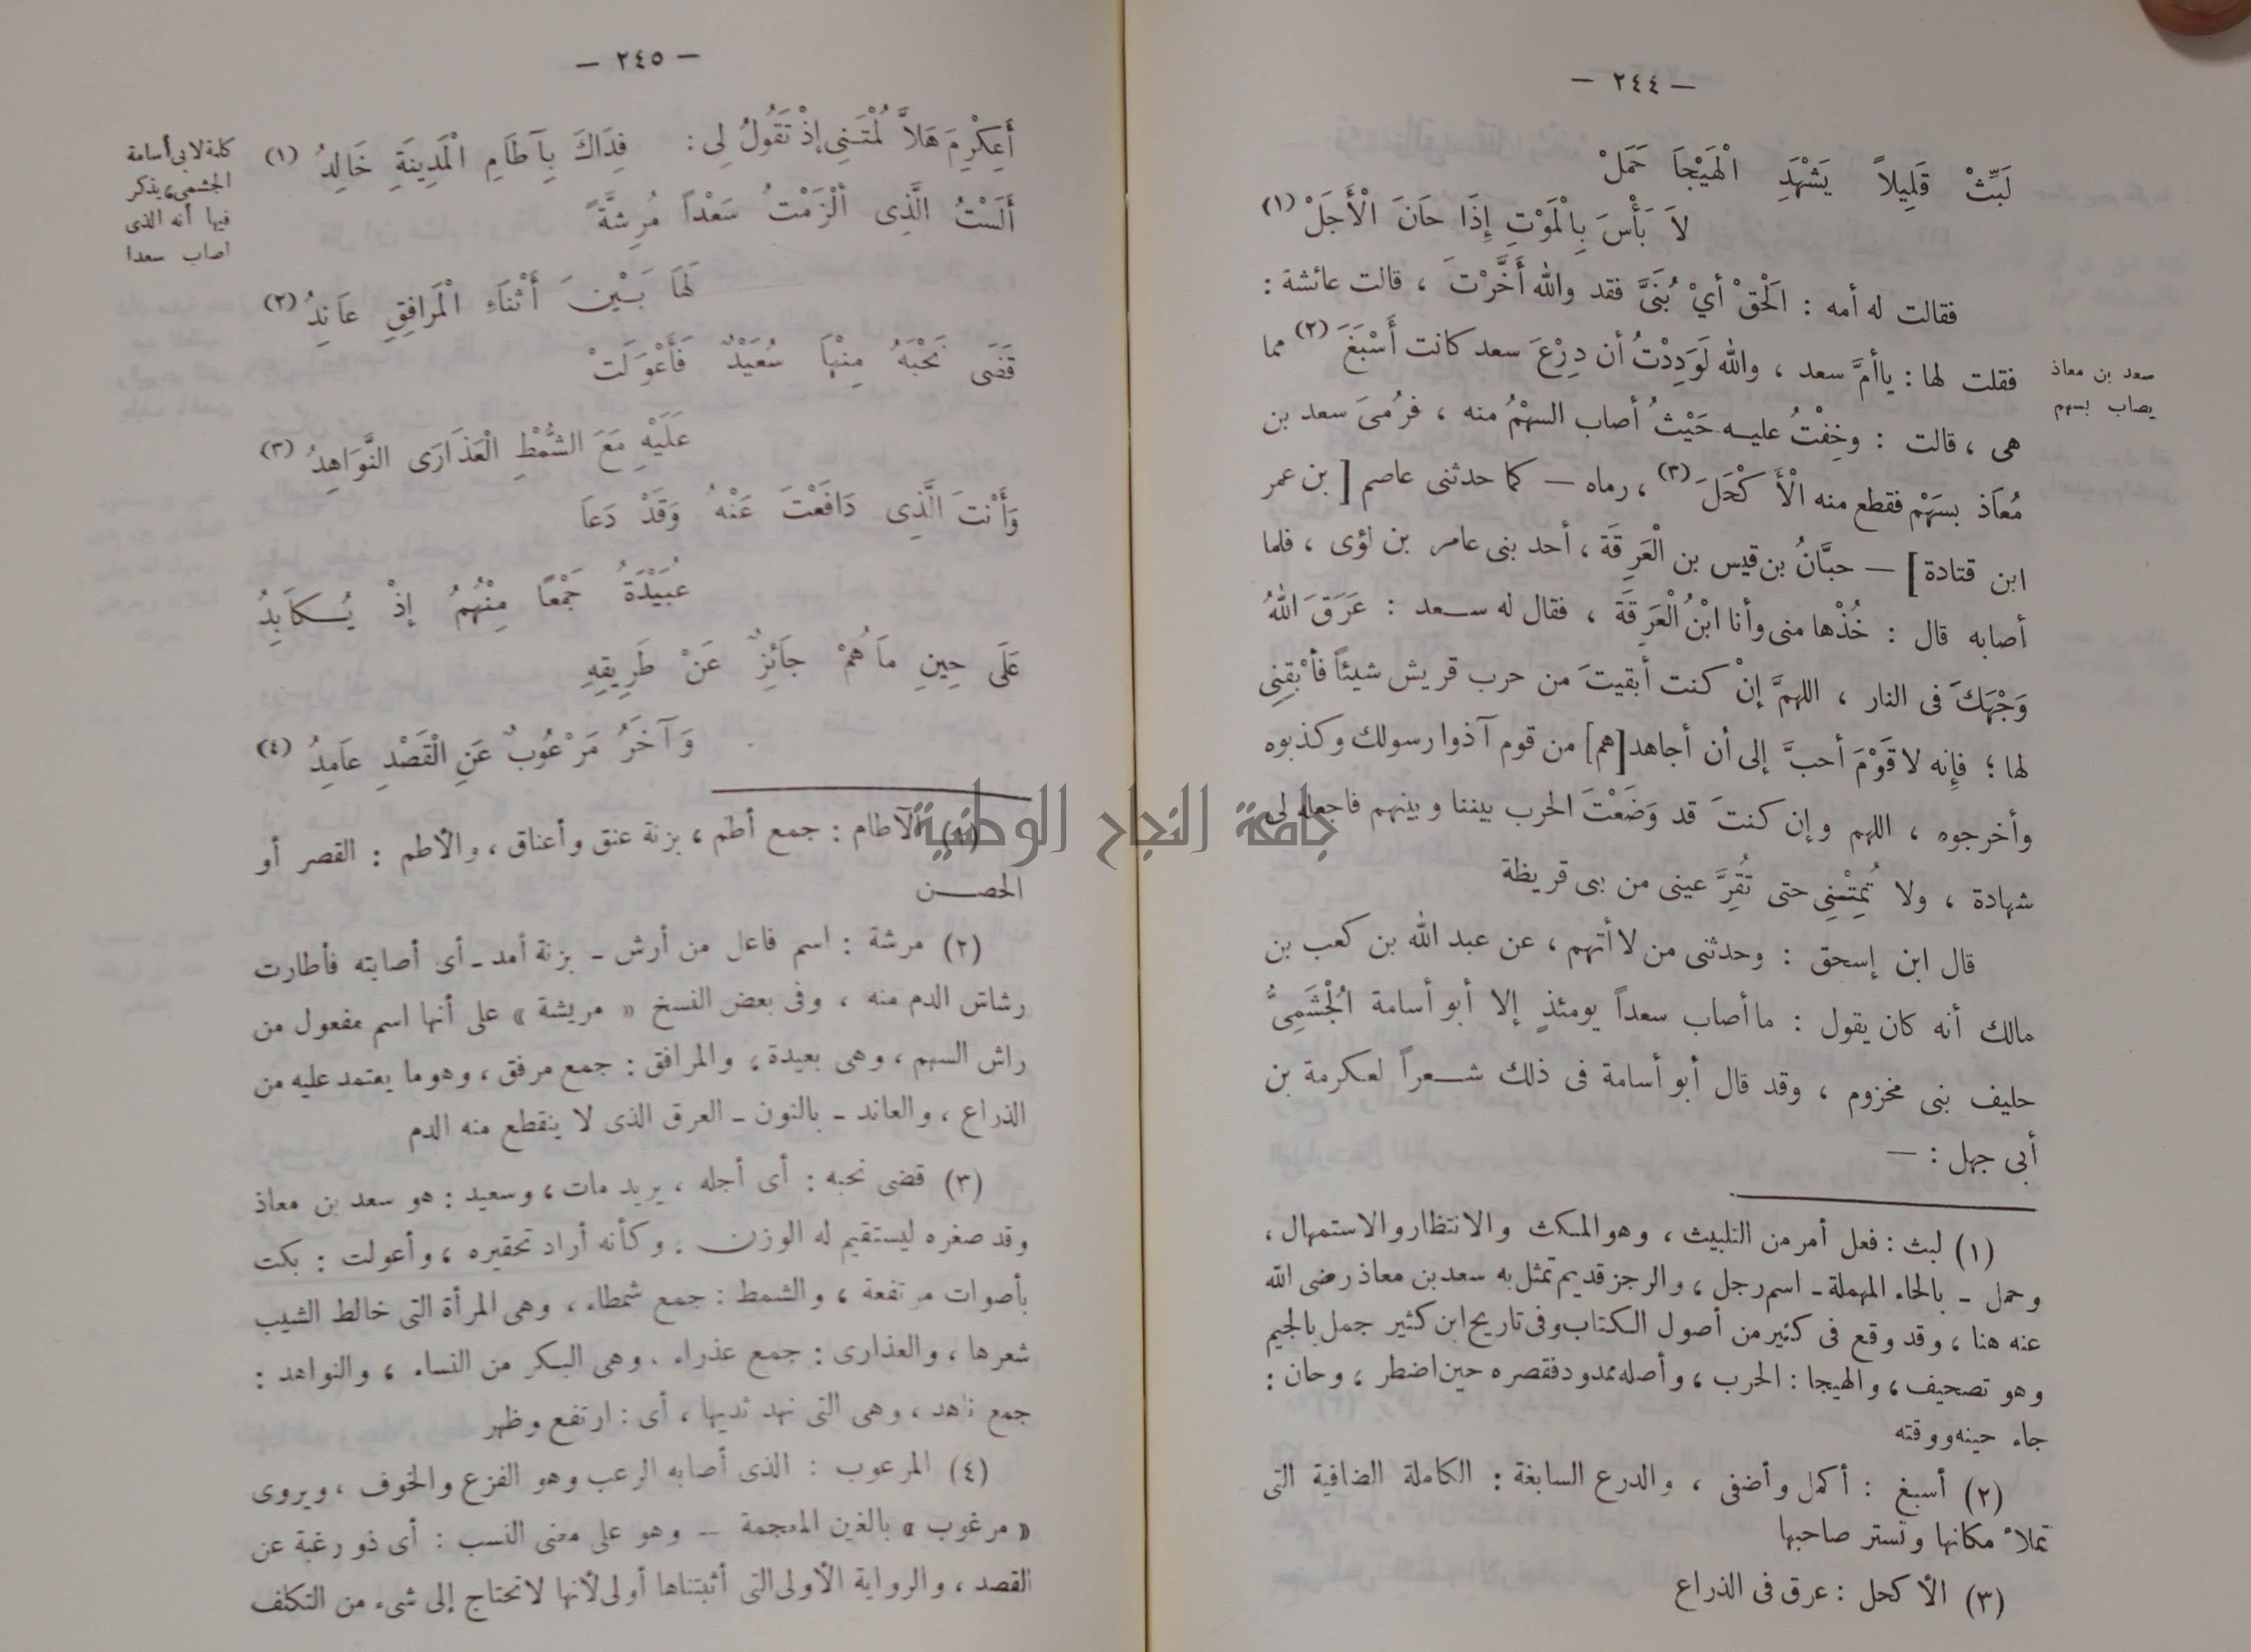 — ٢٤٤ —
لَبِّثْ قَلِيلاً يَشْهَدِ الْهَيْجَا حَمَلْ
لاَ بَأْسَ بِالْمَوْتِ إِذَا حَانَ الْأَجَلْ (١)
فقالت له أمه : الْحَقْ أيْ بُنَىَّ فقد والله أَخَّرْتَ ، قالت عائشة :
فقلت لها : ياأمَّ سعد ، والله لَوَدِدْتُ أن دِرْعَ سعد كانت أَسْبَغَ (٢) مما
هى ، قالت : وخِفْتُ عليه حَيْثُ أصاب السهْمُ منه ، فرُمىَ سعد بن
مُعَاذ بسَهْم فقطع منه الْأَكْحَلَ (٣) ، رماه — كما حدثنى عاصم [ بن عمر
ابن قتادة ] — حبَّانُ بن قيس بن الْعَرِقَةَ ، أحد بنى عامر بن لؤى ، فلما
أصابه قال : خُذْها منى وأنا ابْنُ الْعَرِقَةَ ، فقال له سعد : عَرَقَ اللهُ
وَجْهَكَ فى النار ، اللهمَّ إنْ كنت أبقيتَ من حرب قريش شيئاً فأبْقِنِى
لها ؛ فإنه لا قَوْمَ أحبَّ إلى أن أجاهد[هم] من قوم آذوا رسولك وكذبوه
وأخرجوه ، اللهم وإن كنتَ قد وَضَعْتَ الحرب بيننا وبينهم فاجعله لى
شهادة ، ولا تُمِتْنِى حتى تُقِرَّ عينى من بنى قريظة
قال ابن إسحق : وحدثنى من لا أتهم ، عن عبد الله بن كعب بن
مالك أنه كان يقول : ما أصاب سعداً يومئذٍ إلا أبو أسامة الْجُشَمِىُّ
حليف بنى مخزوم ، وقد قال أبو أسامة فى ذلك شعراً لعكرمة بن
أبى جهل : —
سعد بن معاذ
يصاب بسهم
(١) لبث : فعل أمر من التلبيث ، وهو المكث والانتظار والاستمهال ،
وحمل - بالحاء المهملة - اسم رجل ، والرجز قديم تمثل به سعد بن معاذ رضى الله
عنه هنا ، وقد وقع فى كثير من أصول الكتاب وفى تاريخ ابن كثير جمل بالجيم
وهو تصحيف ، والهيجا : الحرب ، وأصله ممدود فقصره حين اضطر ، وحان :
جاء حينه ووقته
(٢) أسبغ : أكمل وأضفى ، والدرع السابغة : الكاملة الضافية التى
تملأ مكانها وتستر صاحبها
(٣) الأكحل : عرق فى الذراع
— ٢٤٥ —
أَعِكْرِمَ هَلاَّ لُمْتَنِى إذْ تَقُولُ لِى : فِدَاكَ بِآطَامِ الْمَدِينَةِ خَالِدُ (١)
أَلَسْتُ الَّذِى أَلْزَمْتُ سَعْداً مُرِشَّةً
لَهَا بَيْنَ أَثْنَاءِ الْمَرَافِقِ عَانِدُ (٢)
قَضَى نَحْبَهُ مِنْهَا سُعَيْدٌ فَأَعْوَلَتْ
عَلَيْهِ مَعَ الشُّمْطِ الْعَذَارَى النَّوَاهِدُ (٣)
وَأَنْتَ الَّذِى دَافَعْتَ عَنْهُ وَقَدْ دَعَا
عُبَيْدَةُ جَمْعًا مِنْهُمُ إذْ يُكَابِدُ
عَلَى حِينِ مَا هُمْ جَائِزٌ عَنْ طَرِيقِهِ
وَآخَرُ مَرْعُوبٌ عَنِ الْقَصْدِ عَامِدُ (٤)
كلمة لابى أسامة
الجشمى، يذكر
فيها أنه الذى
اصاب سعدا
(١) الآطام : جمع أطم ، بزنة عنق وأعناق ، والأطم : القصر أو
الحصن
(٢) مرشة : اسم فاعل من أرش - بزنة أمد - أى أصابته فأطارت
رشاش الدم منه ، وفى بعض النسخ « مريشة » على أنها اسم مفعول من
راش السهم ، وهى بعيدة ، والمرافق : جمع مرفق ، وهو ما يعتمد عليه من
الذراع ، والعاند - بالنون - العرق الذى لا ينقطع منه الدم
(٣) قضى نحبه : أى أجله ، يريد مات ، وسعيد : هو سعد بن معاذ
وقد صغره ليستقيم له الوزن ، وكأنه أراد تحقيره ، وأعولت : بكت
بأصوات مرتفعة ، والشمط : جمع شمطاء ، وهى المرأة التى خالط الشيب
شعرها ، والعذارى : جمع عذراء . وهى البكر من النساء ، والنواهد :
جمع ناهد ، وهى التى نهد ثديها ، أى : ارتفع وظهر
(٤) المرعوب : الذى أصابه الرعب وهو الفزع والخوف ، ويروى
« مرغوب » بالغين المعجمة - وهو على معنى النسب : أى ذو رغبة عن
القصد ، والرواية الأولى التى أثبتناها أولى لأنها لا تحتاج إلى شىء من التكلف
جامعة النجاح الوطنية